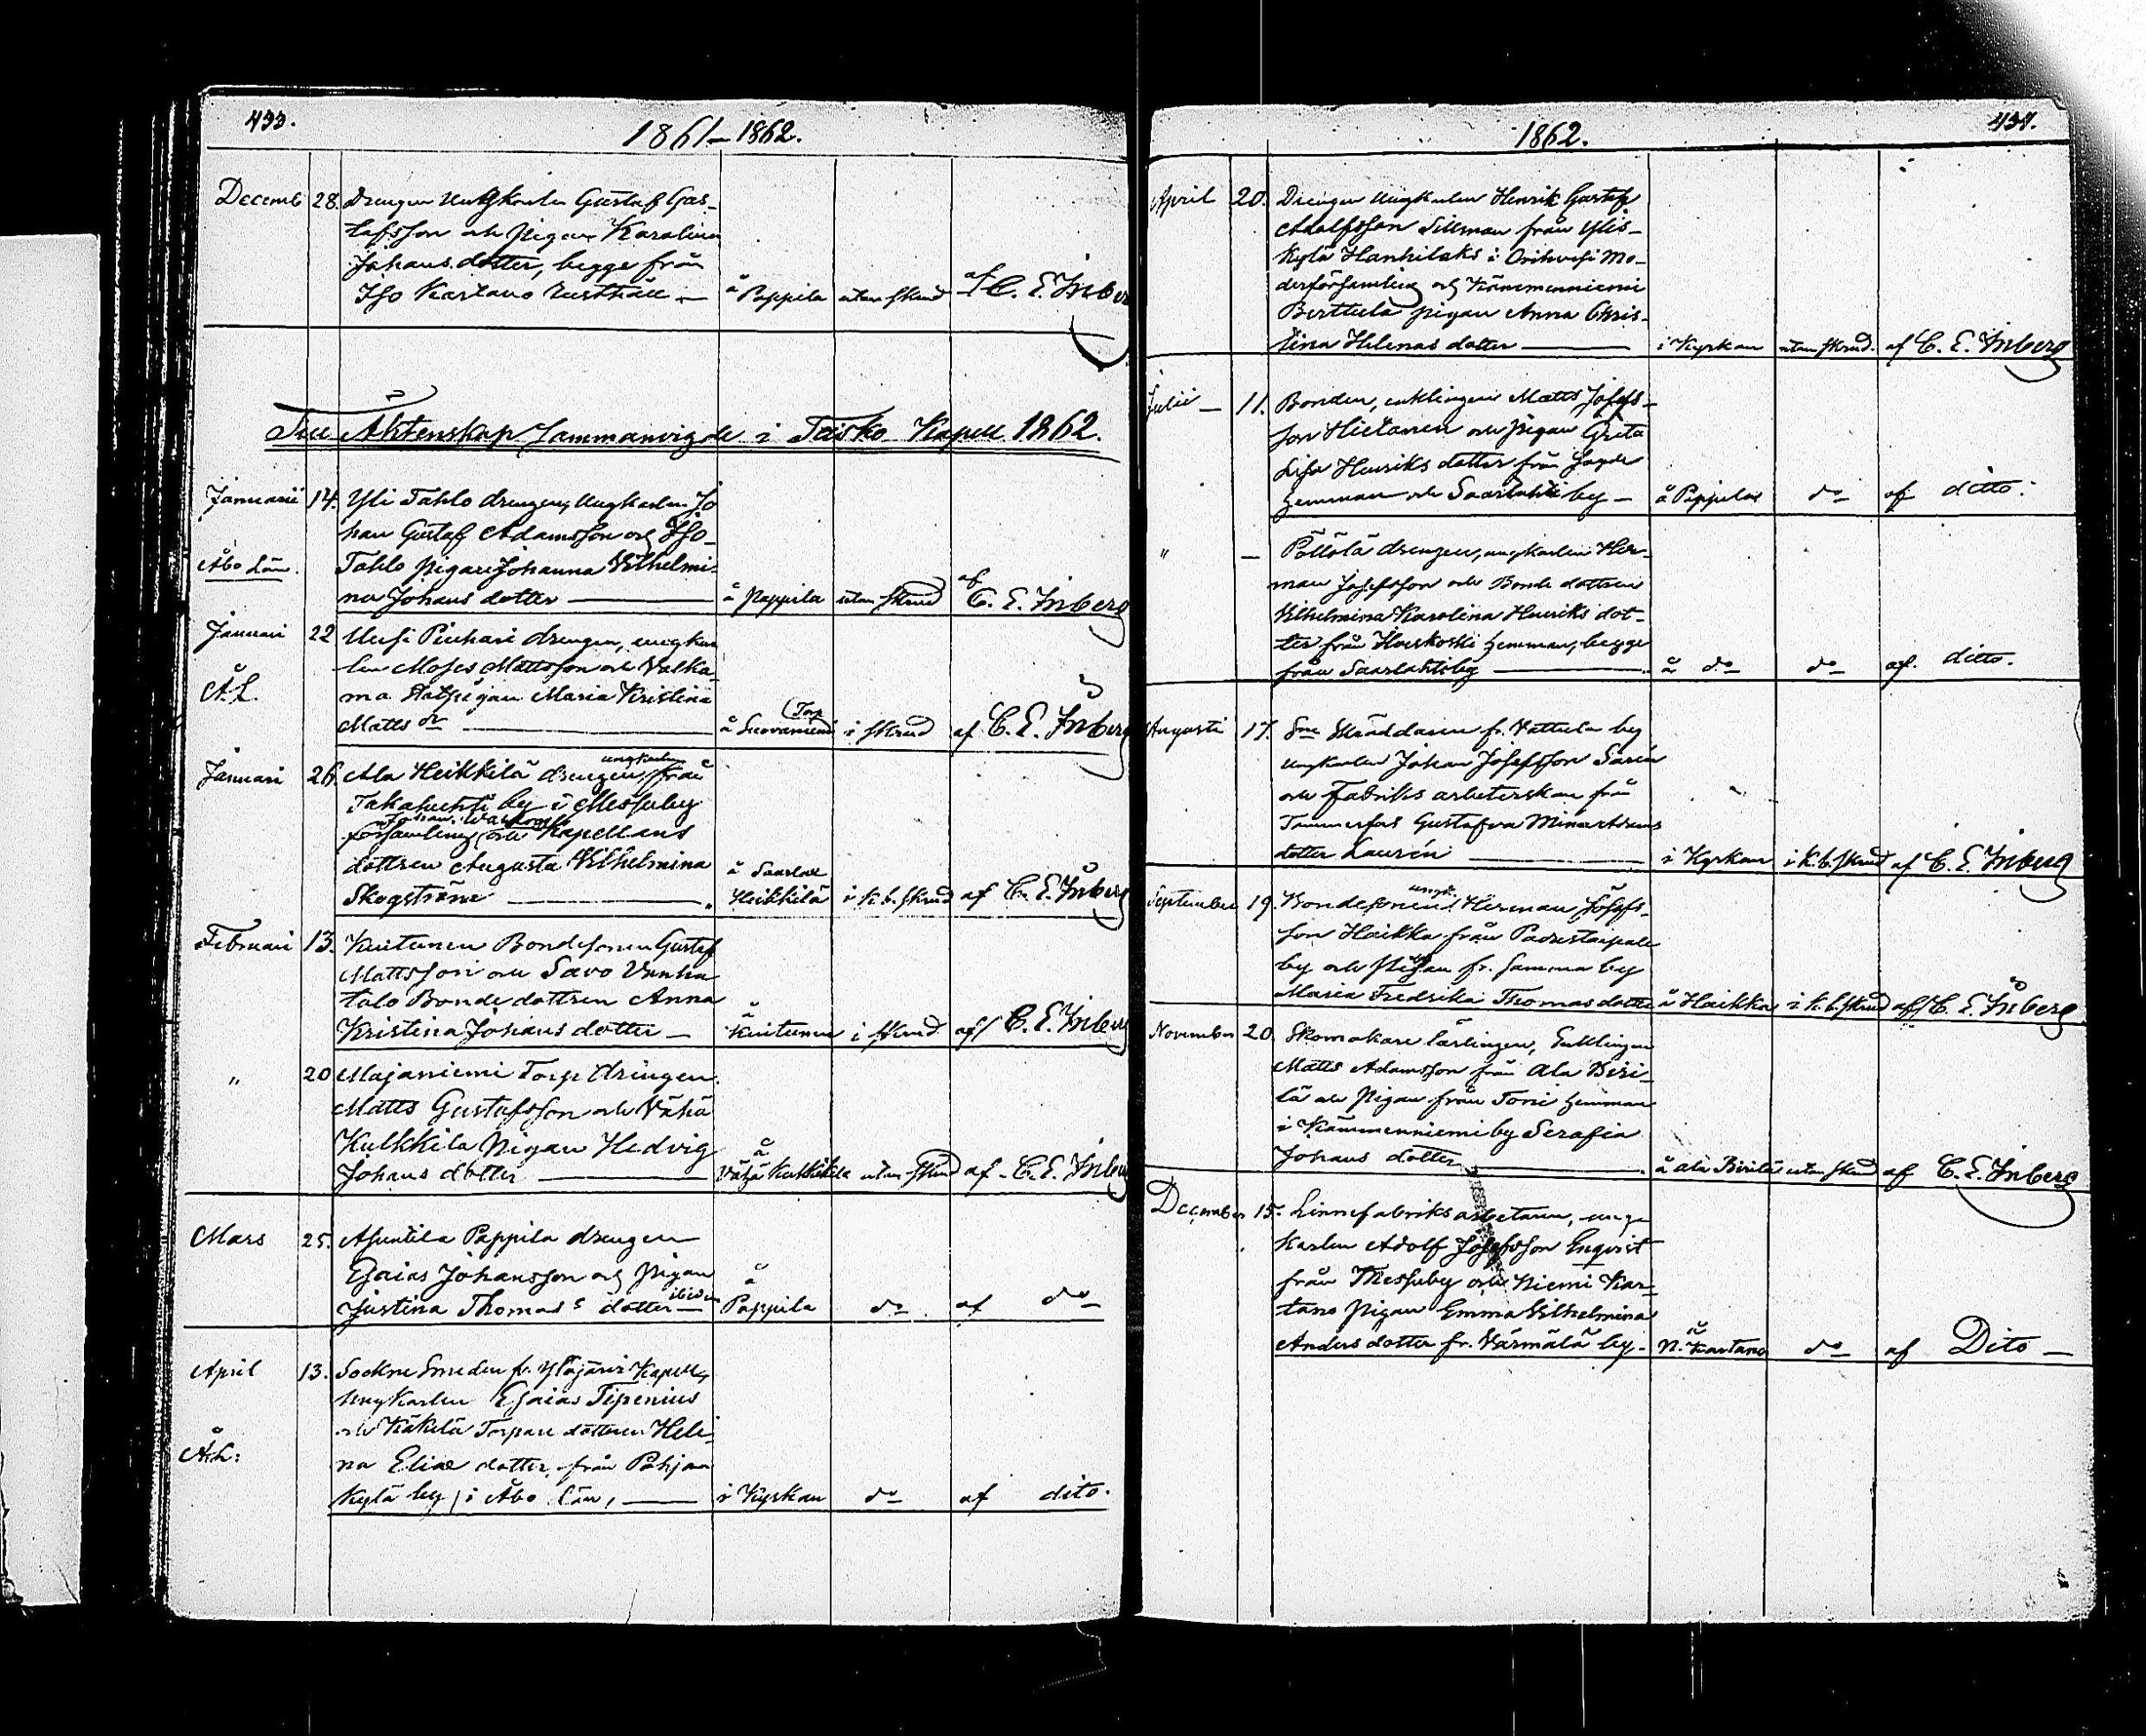 433.
1861–1862.
Decemb 28. Drengen Ungkarlen Gustaf Gus-
tafsson och Pigan Karolina
Johans dotter, begge från
Iso Kartano Rusthåll — å Pappila utan skrud af C. E. Inberg
Till Äktenskap Sammanvigde i Teisko Kapell 1862.
Januarii 14. Yli Tahlo drengen, Ungkarlen Jo
han Gustaf Adamsson och Iso-
Åbo Län. Tahlo pigan Johanna Vilhelmi-
na Johans dotter — å Pappila utan skrud af C. E. Inberg
Januari 22 Uusi Piuhari drengen, ungkar
len Moses Mattsson och Valka-
Å.L. ma pigan Maria Kristina
Matts dr — å Suovaniemi Torp i skrud af C. E. Inberg
Januari 26. Ala Heikkilä drengen, ungkarlen från
Takahuhti by i Messuby
Johan
församling och Kapellans
dottren Augusta Vilhelmina å Saarlax
Skogström — Heikkilä i k. b. skrud af C. E. Inberg
Februari 13. Kuitunen Bondesonen Gustaf
Mattsson och Savo Vanha
talo Bonde dottren Anna
Kristina Johans dotter — å Kuitunen i skrud af C. E. Inberg
" 20 Majaniemi Torp drengen
Matts Gustafsson och Vähä
Kulkkila Pigan Hedvig
Johans dotter — å Vähä Kulkkila utan skrud af C. E. Inberg
Mars 25. Asuntila Pappila drengen
Esaias Johansson och Pigan
Justina Thomas dotter — å Pappila do af do
April 13. Sockne Smeden fr. Ylöjärvi Kapell,
Ungkarlen Esaias Tipenius
och Käkelä Torpare dottren Hele-
Å.L: na Elias dotter, från Pohjan
Kylä by i Åbo län, — i Kyrkan do af dito.
1862.
437.
April 20. Drengen Ungkarlen Henrik Gustaf
Adolfsson Sillman från Ylis-
Kylä Hanhilaks i Orihvesi Mo-
derförsamling och Kämmenniemi
Berttula pigan Anna Chris-
tina Helenas dotter — i Kyrkan utan skrud. af C. E. Inberg
Julii — 11. Bonden, enklingen Matts Josefs-
son Hietanen och pigan Greta
Lisa Henriks dotter från
hemman och Saarlahti by — å Pappila do af ditto.
" — Pöllölä drengen, ungkarlen Her-
man Josefsson och Bonde dottren
Vilhelmina Karolina Henriks dot-
ter från Koskoski hemman, begge
från Saarlahti by — å do do af ditto.
Augusti 17. Sne Skräddaren fr. Vattula by
ungkarlen Johan Josefsson Sarén
och Fabriks arbeterskan från
Tammerfors Gustafva Mina Adams
dotter Laurén — i Kyrkan i k. b. skrud af C. E. Inberg
September 19. Bondesonen ungk. Herman Josefs-
son Haikka från Padustaipale
by och pigan fr. Samma by
Maria Fredrika Thomas dotter å Haikka i k. b. skrud af C. E. Inberg
November 20. Skomakare lärlingen, Enklingen
Matts Adamsson från Ala Biri-
lä och Pigan från Toni hemman
i Kämmenniemi by Serafia
Johans dotter — å Ala Birilä utan skrud af C. E. Inberg
December 15. Linnefabriks arbetaren, unga
karlen Adolf Josefsson Enqvist
från Messuby och Niemi Kar-
tano Pigan Emma Vilhelmina
Anders dotter fr. Värmälä by — å N. Kartano do af Dito —